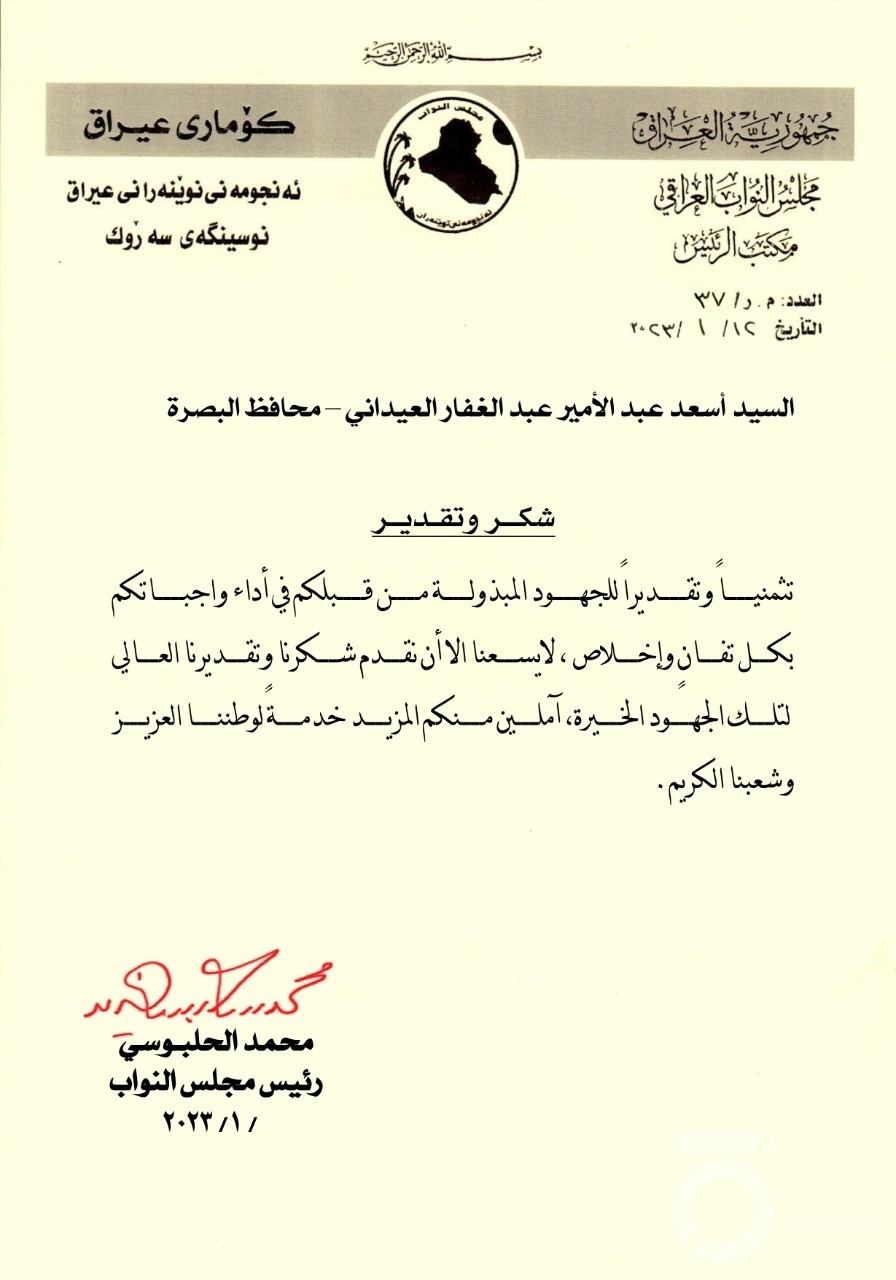 بسم الله الرحمن الرحيم
جمهورية العراق
مجلس النواب العراقي
مكتب الرئيس
كۆماری عیراق
ئه نجومه نی نوێنه رانی عیراق
نوسینگه‌ی سه رۆك
مجلس النواب
ئه نجومه نی نوێنه ران
العدد: م . ر/ ٣٧
التأريخ ١٢/ ١ /٢٠٢٣
السيد أسعد عبد الأمير عبد الغفار العيداني – محافظ البصرة
شكر وتقدير
تثمنياً وتقديراً للجهود المبذولة من قبلكم في أداء واجباتكم
بكل تفان وإخلاص ، لايسعنا الا أن نقدم شكرنا وتقديرنا العالي
لتلك الجهود الخيرة، آملين منكم المزيد خدمةً لوطننا العزيز
وشعبنا الكريم .
محمد الحلبوسي
رئيس مجلس النواب
/ ١/ ٢٠٢٣